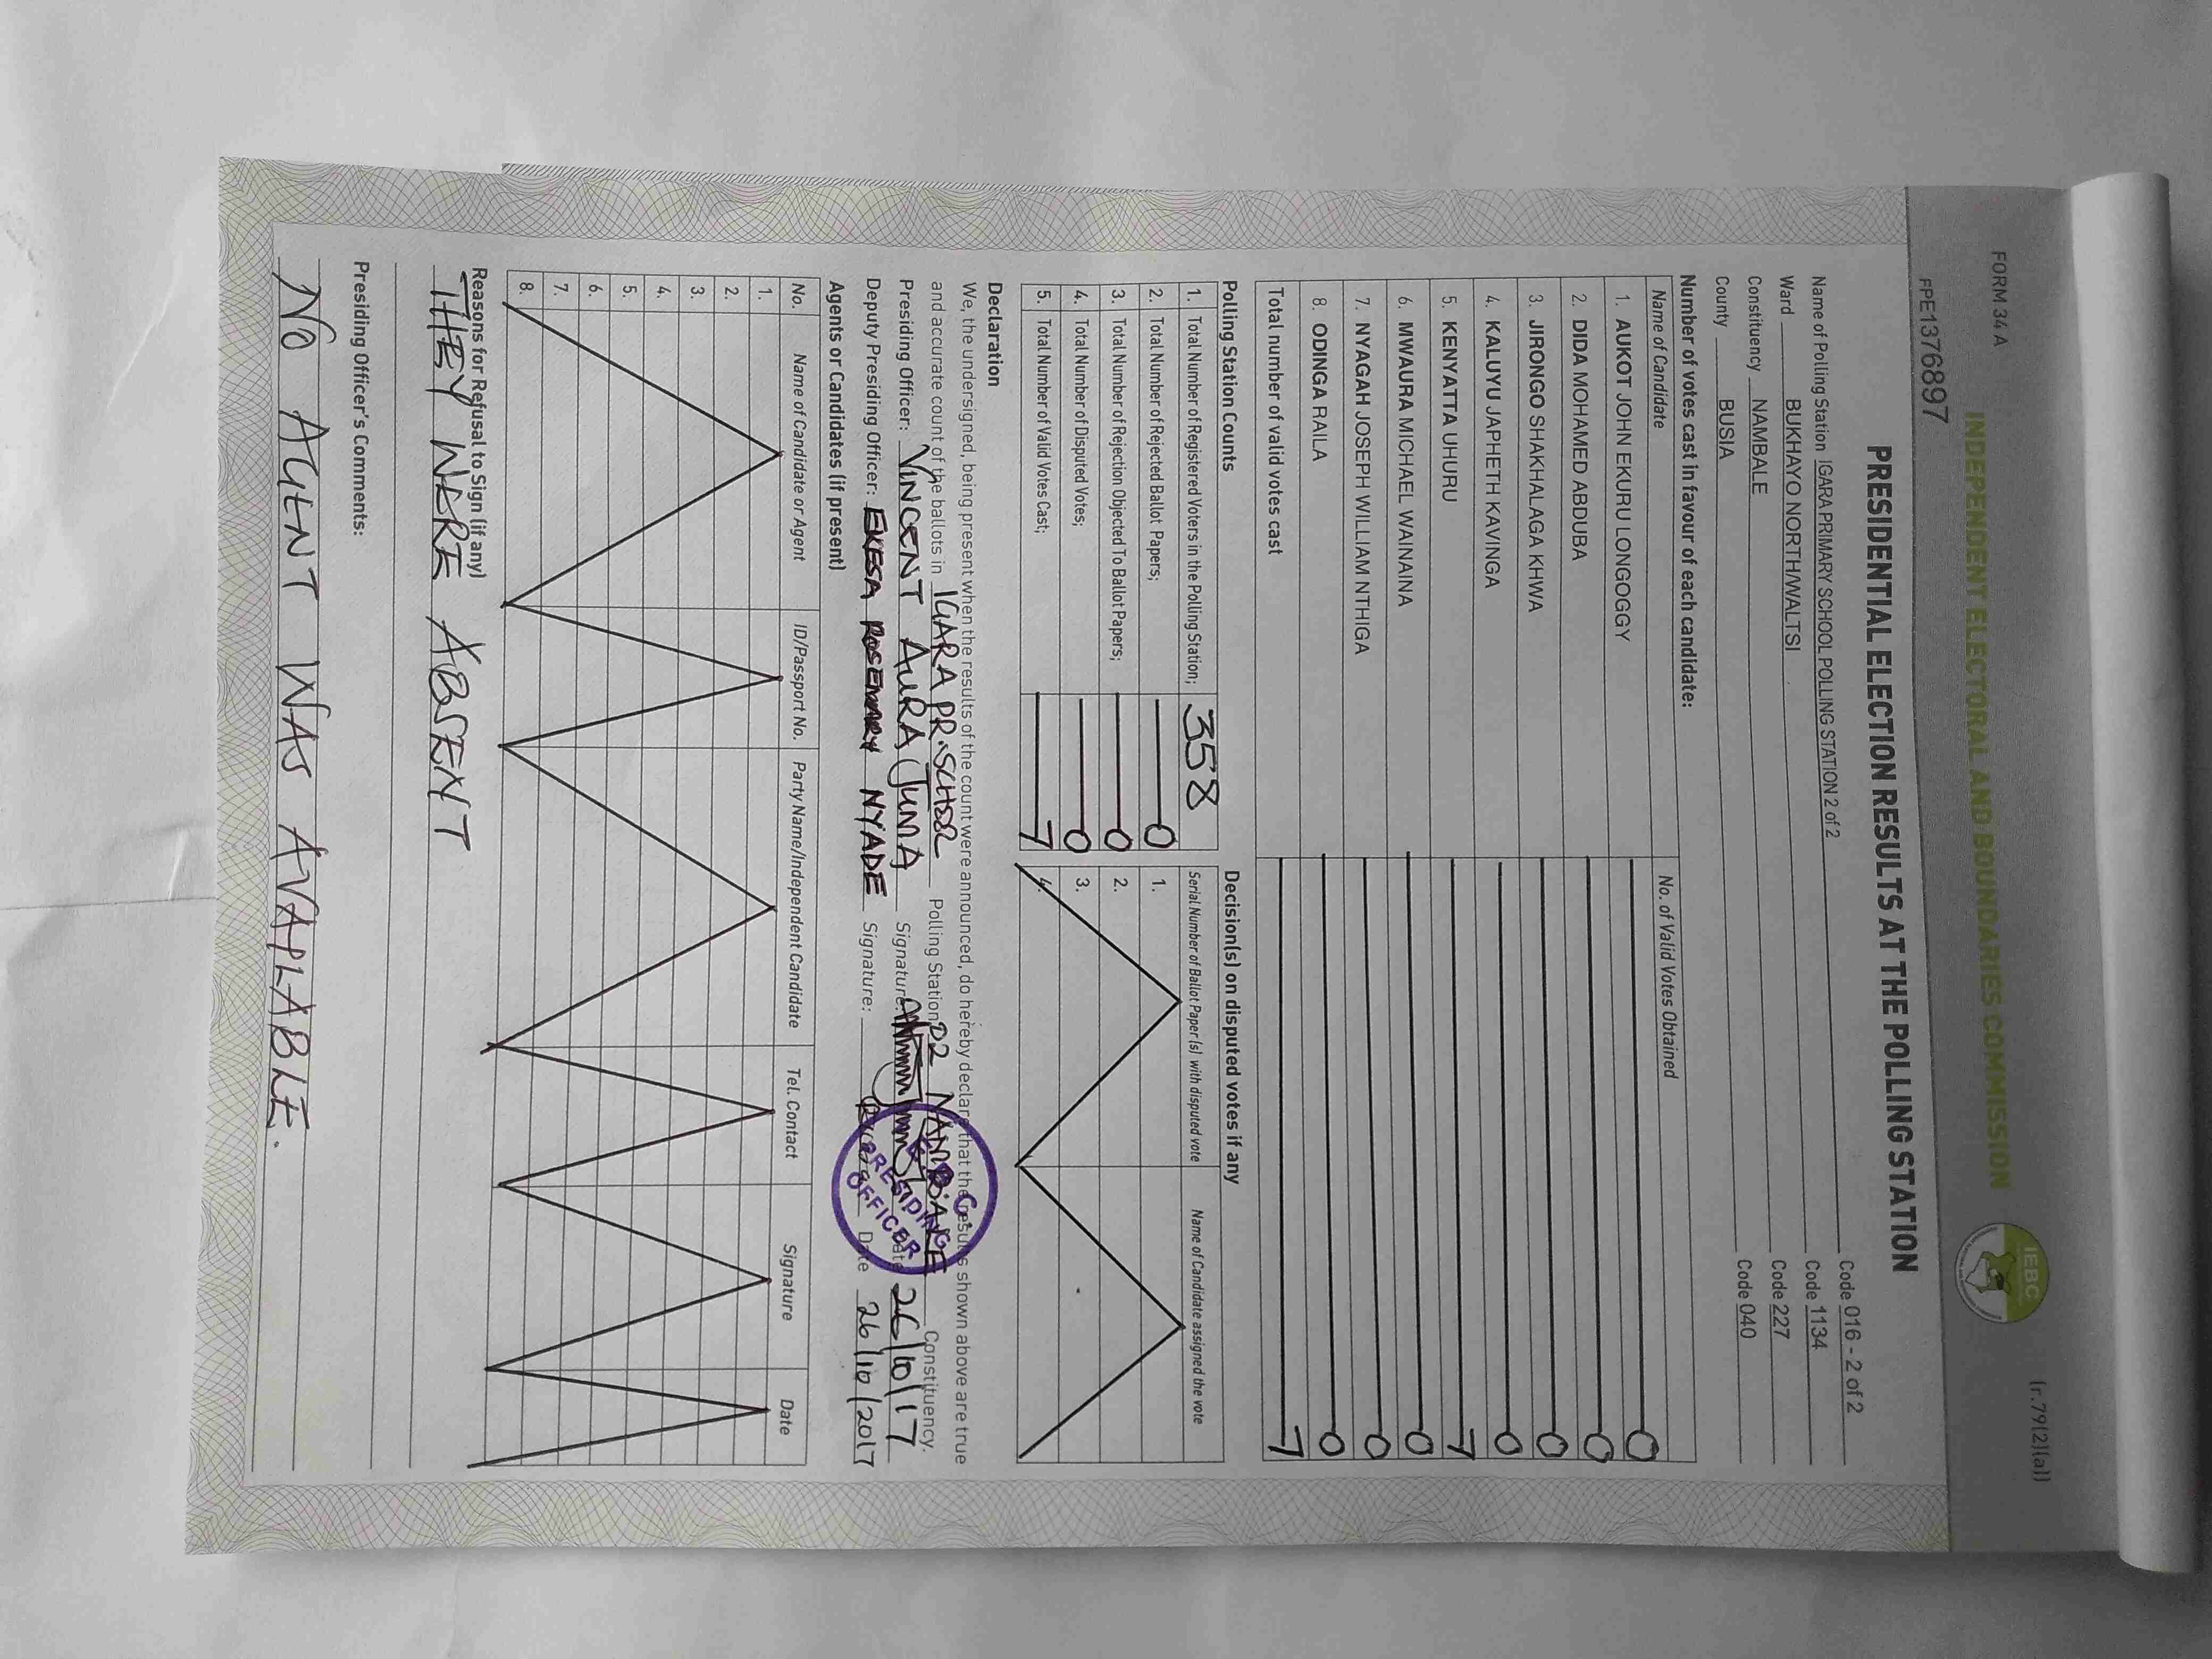 FORM 34 A
(r.79(2)(a))
INDEPENDENT ELECTORAL AND BOUNDARIES COMMISSION
IEBC
FPE1376897
PRESIDENTIAL ELECTION RESULTS AT THE POLLING STATION
Name of Polling Station IGARA PRIMARY SCHOOL POLLING STATION 2 of 2 Code 016 - 2 of 2
Ward BUKHAYO NORTH/WALTSI Code 1134
Constituency NAMBALE Code 227
County BUSIA Code 040
Number of votes cast in favour of each candidate:
Name of Candidate No. of Valid Votes Obtained
1. AUKOT JOHN EKURU LONGOGGY 0
2. DIDA MOHAMED ABDUBA 0
3. JIRONGO SHAKHALAGA KHWA 0
4. KALUYU JAPHETH KAVINGA 0
5. KENYATTA UHURU 7
6. MWAURA MICHAEL WAINAINA 0
7. NYAGAH JOSEPH WILLIAM NTHIGA 0
8. ODINGA RAILA 0
Total number of valid votes cast 7
Polling Station Counts
1. Total Number of Registered Voters in the Polling Station; 358
2. Total Number of Rejected Ballot Papers; 0
3. Total Number of Rejection Objected To Ballot Papers; 0
4. Total Number of Disputed Votes; 0
5. Total Number of Valid Votes Cast; 7
Decision(s) on disputed votes if any
Serial Number of Ballot Paper (s) with disputed vote Name of Candidate assigned the vote
1.
2.
3.
4.
Declaration
We, the undersigned, being present when the results of the count were announced, do hereby declare that the results shown above are true
and accurate count of the ballots in IGARA PR. SCHOOL Polling Station 02 NAMBALE Constituency.
Presiding Officer: VINCENT AURA JUMA Signature: Date 26/10/17
Deputy Presiding Officer: EKESA ROSEMARY NYADE Signature: Date 26/10/2017
PRESIDING
OFFICER
Agents or Candidates (if present)
No. Name of Candidate or Agent ID/Passport No. Party Name/Independent Candidate Tel. Contact Signature Date
1.
2.
3.
4.
5.
6.
7.
8.
Reasons for Refusal to Sign (if any)
THEY WERE ABSENT
Presiding Officer's Comments:
NO AGENT WAS AVAPLABLE.